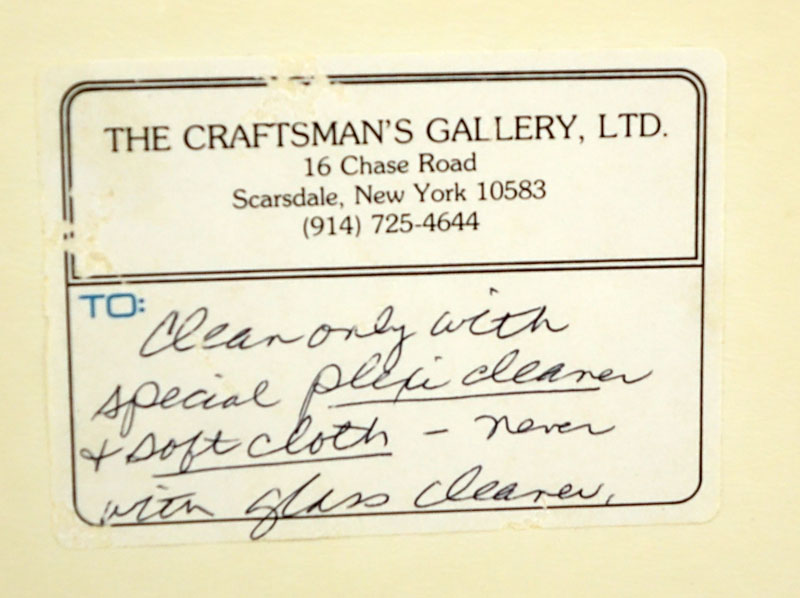 THE CRAFTSMAN'S GALLERY, LTD.
16 Chase Road
Scarsdale, New York 10583
(914) 725-4644
TO:
Clean only with
special plexi cleaner
& soft cloth – never
with glass cleaner.